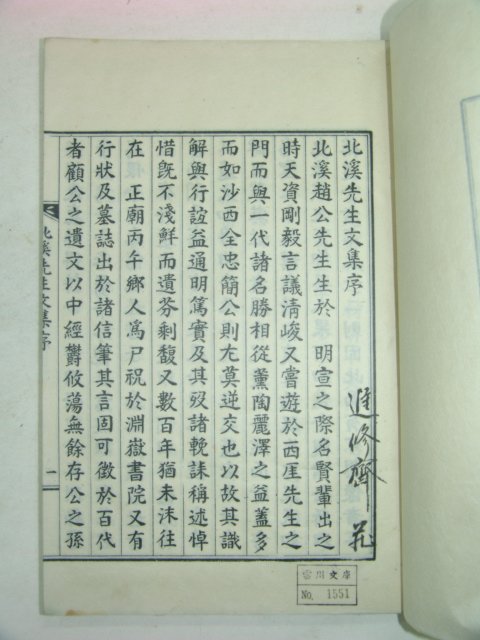 北溪先生文集序
北溪趙公先生生於 明宣之際名賢輩出之
時天資剛毅言議淸峻又嘗遊於西厓先生之
門而與一代諸名勝相從薰陶麗澤之益蓋多
而如沙西全忠簡公則尤莫逆交也以故其識
解與行誼益通明篤實及其歿諸輓誄稱述悼
惜旣不淺鮮而遺芬剩馥又數百年猶未沫往
在 正廟丙午鄉人爲尸祝於淵嶽書院又有
行狀及墓誌出於諸信筆其言固可徵於百代
者顧公之遺文以中經欝攸蕩無餘存公之孫
北溪先生文集序
一
進修齋
雲川文庫
No. 1551